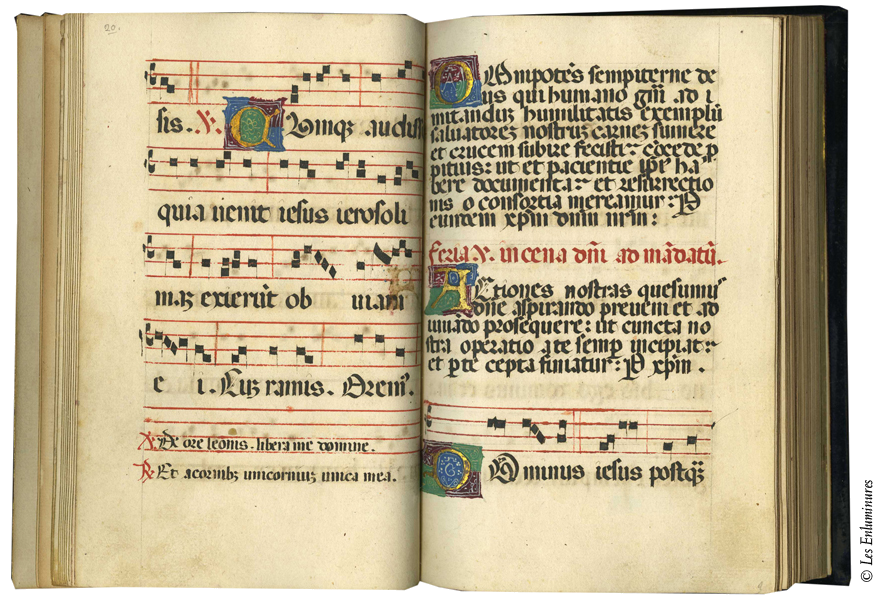 20.
sis. V. Cumqz audiss
quia uenit iesus ierosoli
maz exierūt ob uiam
e i. Cuz ramis. Orem9.
V. De ore leonis. libera me domine.
R. Et a cornibz unicornuz unica mea.
Omnipotēs sempiterne de
us qui humano gñi ad i
mitanduz humilitatis exemplū
saluatorez nostruz carnez sumere
et crucem subire fecisti: cōcede p
pitius: ut et pacientie ip̄i ha
bere documenta: et resurrectio
nis consortia mereamur: P
eundem xp̄m dñm nr̄m:
Feria V. in cena dñi ad mādatū.
Actiones nostras quesumus
dñe aspirando preueni et ad
iuuādo prosequere: ut cuncta no
stra operatio a te semp incipiat:
et p te cepta finiatur: P xp̄m.
Dominus iesus postqz
© Les Enluminures